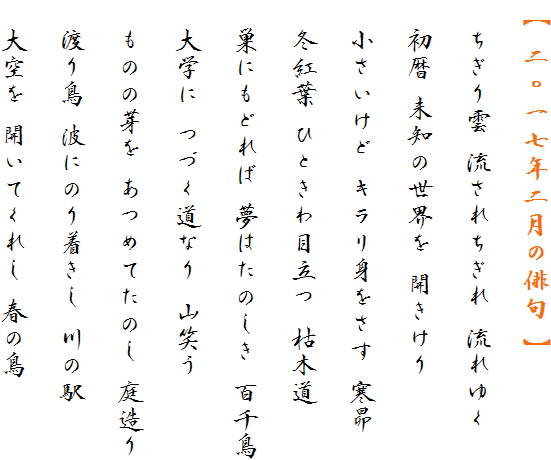 【 二〇一七年二月の俳句 】
ちぎり雲 流されちぎれ 流れゆく
初暦 未知の世界を 開きけり
小さいけど キラリ身をさす 寒昴
冬紅葉 ひときわ目立つ 枯木道
巣にもどれば 夢はたのしき 百千鳥
大学に つづく道なり 山笑う
ものの芽を あつめてたのし 庭造り
渡り鳥 波にのり着きし 川の駅
大空を 開いてくれし 春の鳥